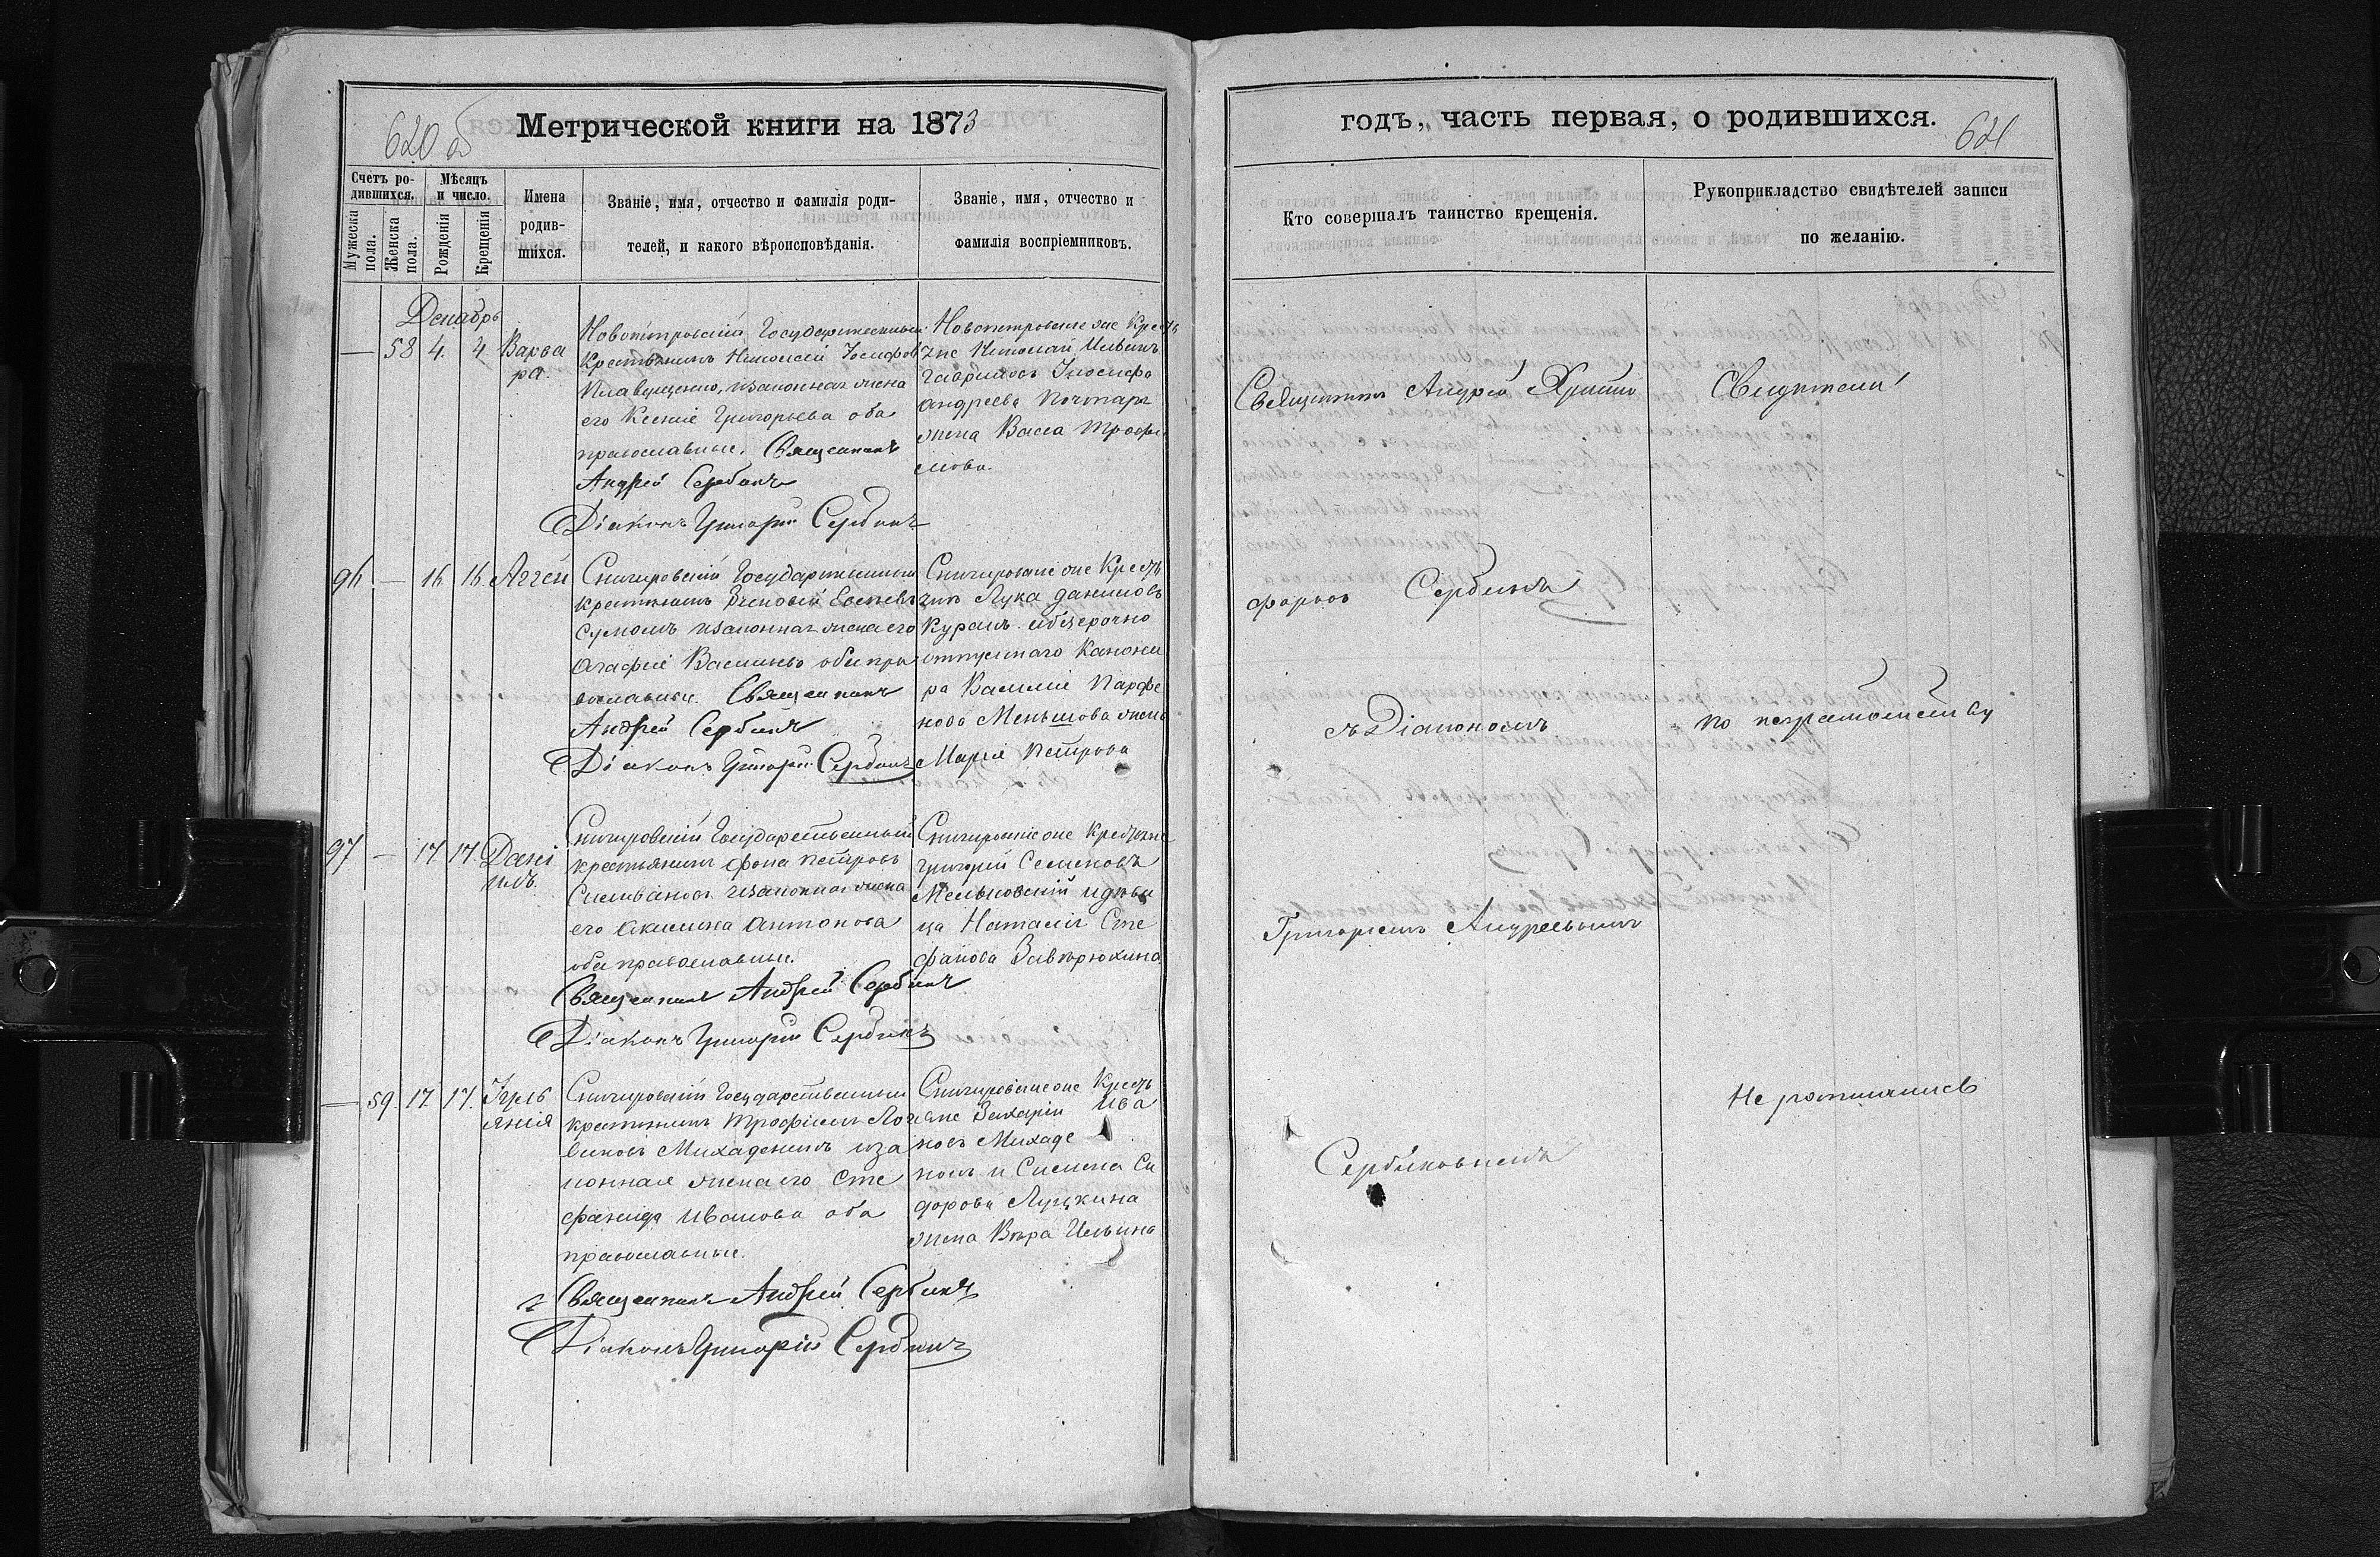 620 об
Метрической книги на 1873
Счетъ ро-
дившихся.
Мѣсяцъ
и число.
Мужеска
пола.
Женска
пола.
Рожденія
Крещенія
Имена
родив-
шихся.
Званіе, имя, отчество и фамилія роди-
телей, и какого вѣроисповѣданія.
Званіе, имя, отчество и
фамилія воспріемниковъ.
Декабрь
— 58 4. 4 Варва
ра.
Новопетровскій Государственный
Крестьянинъ Николай Іосифов
изаконная жена
его Ксенія Григорьева оба
православные. Священникъ
Андрей Сербинъ
Діаконъ Григорій Сербинъ
Новопетровские Кресть
яне Николай Ильинъ
Гавриловъ Иосифа
Андреева
жена Васса Трофи
мова.
96. — 16 16. Аггей
Снигировскій Государственный
крестьянинъ Зиновій
изаконная жена его
Агафія Васильева оба пра
вославные. Священникъ
Андрей Сербинъ
Діаконъ Григорій Сербинъ
Снигировские Кресть
яне Лука Даниловъ
Курашъ
отпускнаго Канони
ра Василія Парфе
нова Меньшова жена
Марія Петрова
97 — 17 17. Дані
илъ.
Снигировскій Государственный
крестьянинъ Фома Петровъ
Сильвановъ изаконная жена
его Акилина Антонова
оба православные.
Священникъ Андрей Сербинъ
Діаконъ Григорій Сербинъ
Снигировские Крестьяне
Григорій Семеновъ
Мельковский идѣви
ца Наталія Сте
фанова Завѣрюхина
— 59. 17. 17. Іул
іанія
Снигировскій Государственный
крестьянинъ Трофимъ Лог
виновъ Михаденкинъ иза
конная жена его Сте
фанида Иванова оба
православные.
Священникъ Андрей Сербинъ
Діаконъ Григорій Сербинъ
Снигировские Кресть
яне Захарій Ива
новъ Михаде
и Симеона Си
дорова Луцкина
жена Вѣра Ильина
годъ, часть первая, о родившихся.
621
Кто совершалъ таинство крещенія.
Рукоприкладство свидѣтелей записи
по желанію.
Священникъ Андрей Христо
форовъ Сербинъ
съ Діакономъ
Григоріемъ Андреевымъ
Сербиновымъ
Свидѣтели
по неграмотству
Не росписались